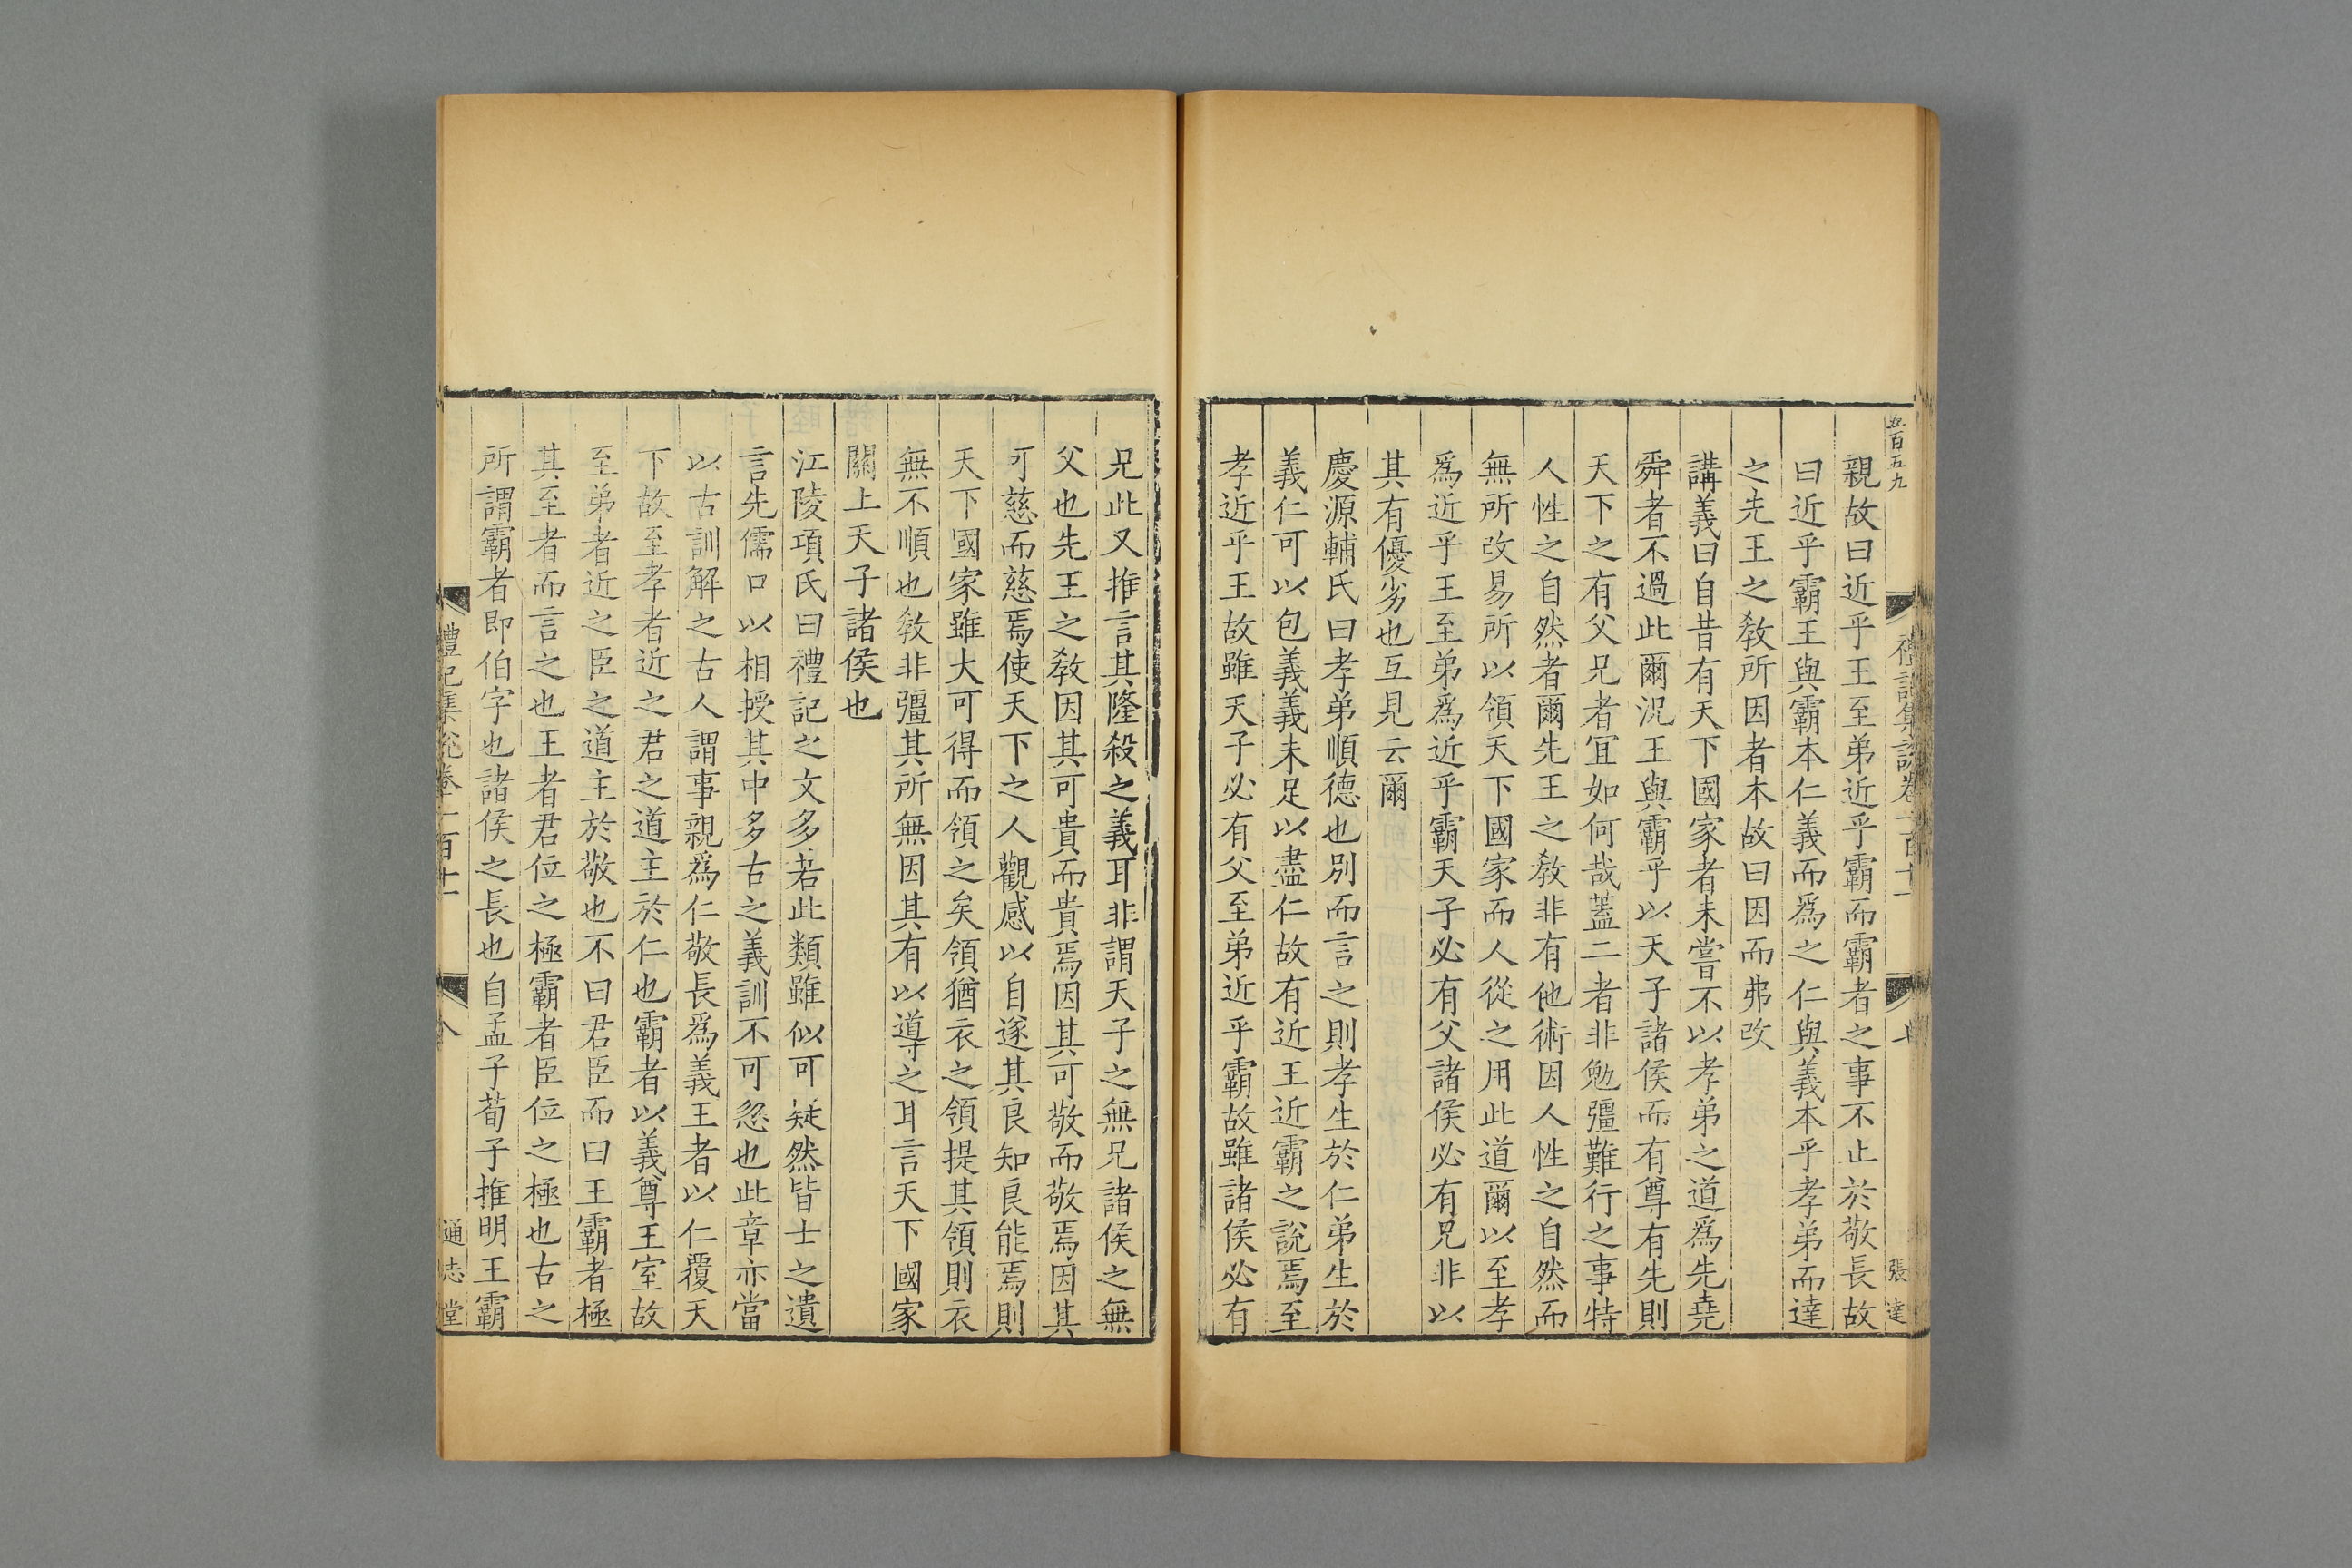 五百五九
禮記集說卷一百十一
七
張達
親故曰近乎王至弟近乎霸而霸者之事不止於敬長故
曰近乎霸王與霸本仁義而爲之仁與義本乎孝弟而達
之先王之敎所因者本故曰因而弗改
講義曰自昔有天下國家者未嘗不以孝弟之道爲先堯
舜者不過此爾況王與霸乎以天子諸侯而有尊有先則
天下之有父兄者宜如何哉蓋二者非勉彊難行之事特
人性之自然者爾先王之敎非有他術因人性之自然而
無所改易所以領天下國家而人從之用此道爾以至孝
爲近乎王至弟爲近乎霸天子必有父諸侯必有兄非以
其有優劣也互見云爾
慶源輔氏曰孝弟順德也別而言之則孝生於仁弟生於
義仁可以包義義未足以盡仁故有近王近霸之說焉至
孝近乎王故雖天子必有父至弟近乎霸故雖諸侯必有
兄此又推言其隆殺之義耳非謂天子之無兄諸侯之無
父也先王之敎因其可貴而貴焉因其可敬而敬焉因其
可慈而慈焉使天下之人觀感以自遂其良知良能焉則
天下國家雖大可得而領之矣領猶衣之領提其領則衣
無不順也敎非彊其所無因其有以導之耳言天下國家
關上天子諸侯也
江陵項氏曰禮記之文多若此類雖似可疑然皆士之遺
言先儒口以相授其中多古之義訓不可忽也此章亦當
以古訓解之古人謂事親爲仁敬長爲義王者以仁覆天
下故至孝者近之君之道主於仁也霸者以義尊王室故
至弟者近之臣之道主於敬也不曰君臣而曰王霸者極
其至者而言之也王者君位之極霸者臣位之極也古之
所謂霸者即伯字也諸侯之長也自孟子荀子推明王霸
禮記集說卷一百十一
八
通志堂